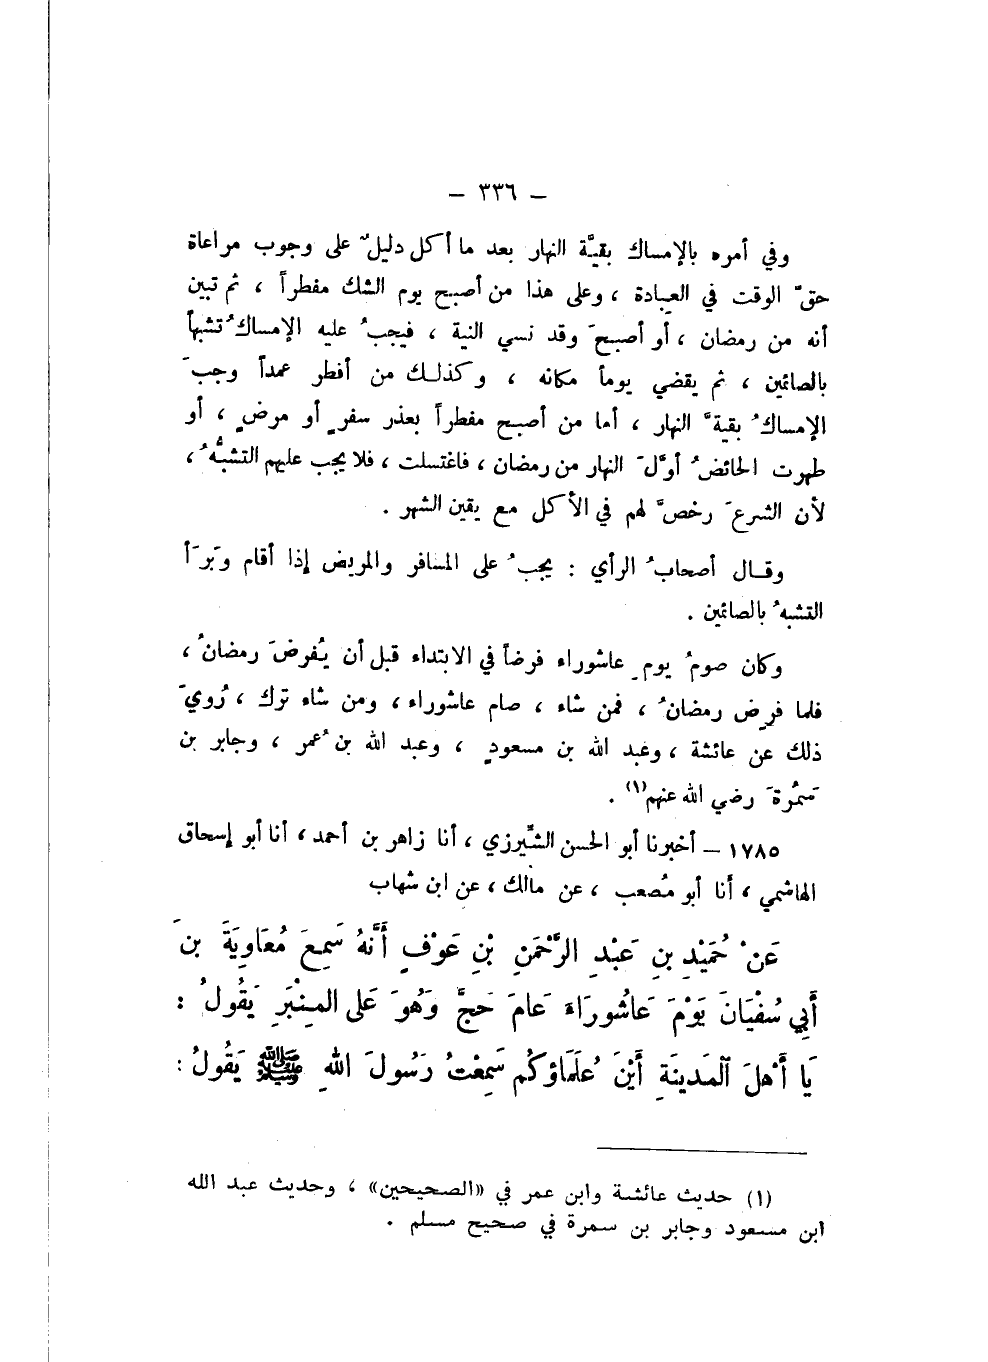 – ٣٣٦ –
وفي أمره بالإمساك بقيَّة النهار بعد ما أكل دليلٌ على وجوب مراعاة
حقِّ الوقت في العبادة ، وعلى هذا من أصبح يوم الشك مفطراً ، ثم تبين
أنه من رمضان ، أو أصبحَ وقد نسي النية ، فيجبُ عليه الإمساكُ تشبهاً
بالصائمين ، ثم يقضي يوماً مكانه ، وكذلك من أفطر عمداً وجبَ
الإمساكُ بقيةَ النهار ، أما من أصبح مفطراً بعذر سفرٍ أو مرضٍ ، أو
طهرت الحائضُ أوَّلَ النهار من رمضان ، فاغتسلت ، فلا يجب عليهم التشبُّهُ ،
لأن الشرعَ رخصَّ لهم في الأكل مع يقين الشهر .
وقال أصحابُ الرأي : يجبُ على المسافر والمريض إذا أقام وَبَرَأَ
التشبهُ بالصائمين .
وكان صومُ يومِ عاشوراء فرضاً في الابتداء قبل أن يُفرضَ رمضانُ ،
فلما فرِض رمضانُ ، فمن شاء ، صام عاشوراء ، ومن شاء ترك ، رُويَ
ذلك عن عائشة ، وعبد الله بن مسعودٍ ، وعبد الله بن عُمر ، وجابر بن
سَمُرةَ رضي الله عنهم(١) .
١٧٨٥ – أخبرنا أبو الحسن الشِّيرزي ، أنا زاهر بن أحمد ، أنا أبو إسحاق
الهاشمي ، أنا أبو مُصعب ، عن مالك ، عن ابن شهاب
عَنْ حُمَيْدِ بنِ عَبْدِ الرَّحْمَنِ بْنِ عَوْفٍ أَنَّهُ سَمِعَ مُعَاوِيَةَ بنَ
أَبِي سُفْيَانَ يَوْمَ عَاشُورَاءَ عَامَ حَجَّ وَهُوَ عَلى المِنْبَرِ يَقُولُ :
يَا أَهْلَ الْمَدينَةِ أَيْنَ عُلَمَاؤكُم سَمِعْتُ رَسُولَ اللهِ ﷺ يَقُولُ :
(١) حديث عائشة وابن عمر في «الصحيحين» ، وحديث عبد الله
ابن مسعود وجابر بن سمرة في صحيح مسلم .